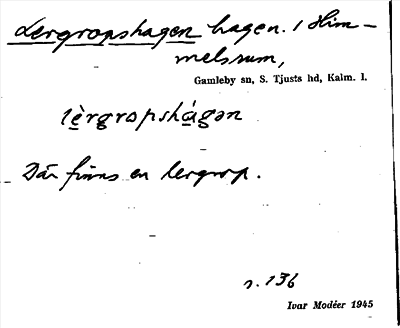 Lergropshagen hagen. i Him-
melsrum,
Gamleby sn, S. Tjusts hd, Kalm. l.
lèrgropshágən
Där finns en lergrop.
s. 136
Ivar Modéer 1945